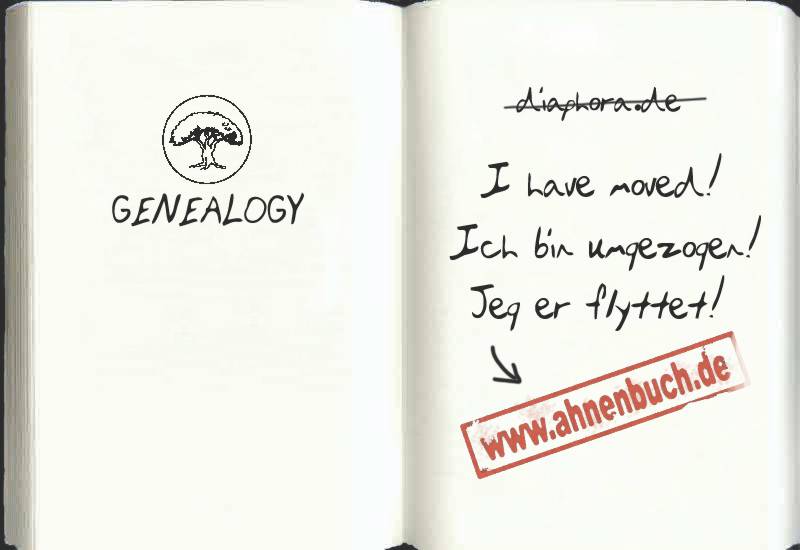 GENEALOGY
diaphora.de
I have moved!
Ich bin umgezogen!
Jeg er flyttet!
www.ahnenbuch.de